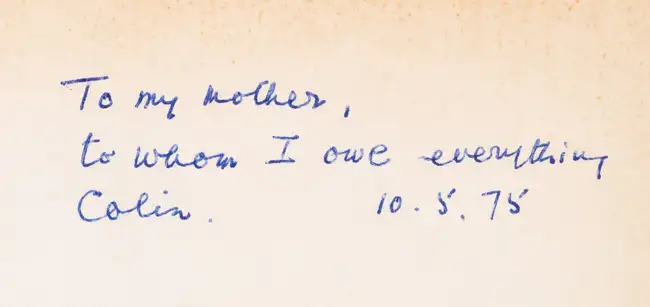 To my mother,
to whom I owe everything
Colin. 10.5.75